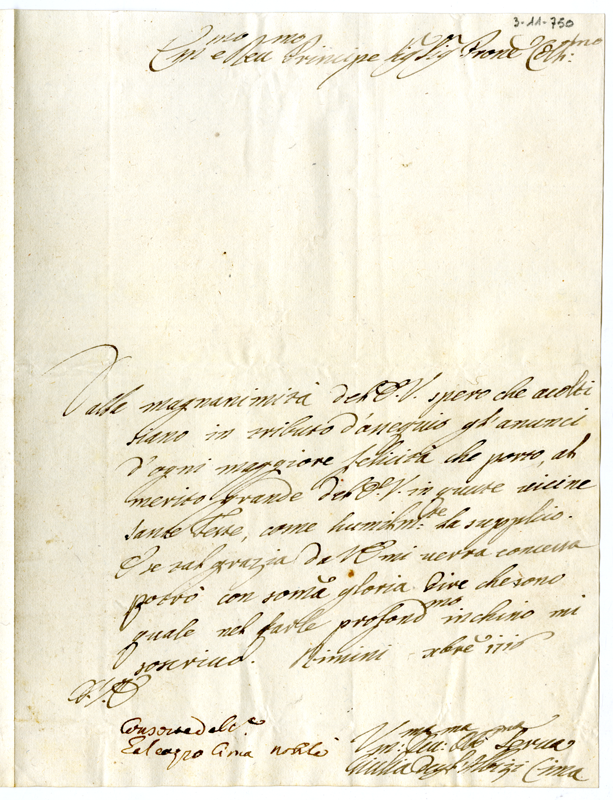 3-11-750
Em.mo e Rev.mo Principe Sig.r Sig.r Prone Col.mo
Dalla magnanimità dell'E.V. spero che acolti
siano in tributo d'osequio gl'anunci
d'ogni maggiore felicità che porto, al
merito grande dell'E.V. in queste vicine
sante Feste, come humilm.te la supplico.
E se tal grazia da V.E. mi verrà concessa
potrò con soma gloria dire che sono
quale nel farle profond.mo inchino mi
soscrivo. Rimini xbre 1716
D.V.E.
Consorte del C.e
Taleagro Cima nobile
V.ma Dev.ma Ob.ma Serva
Giulia degl'Albizi Cima